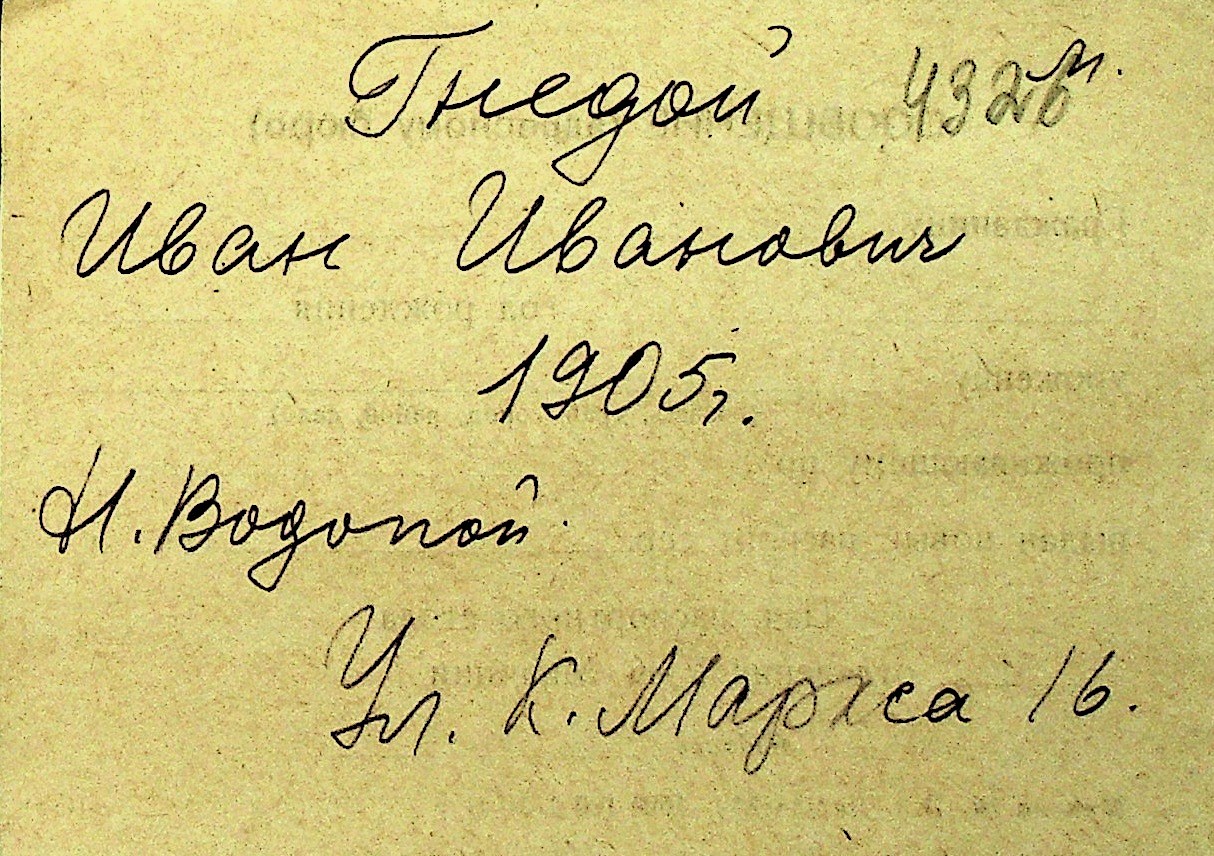 Гнедой
Иван Иванович
1905г.
Н. Водопой
Ул. К. Маркса 16.